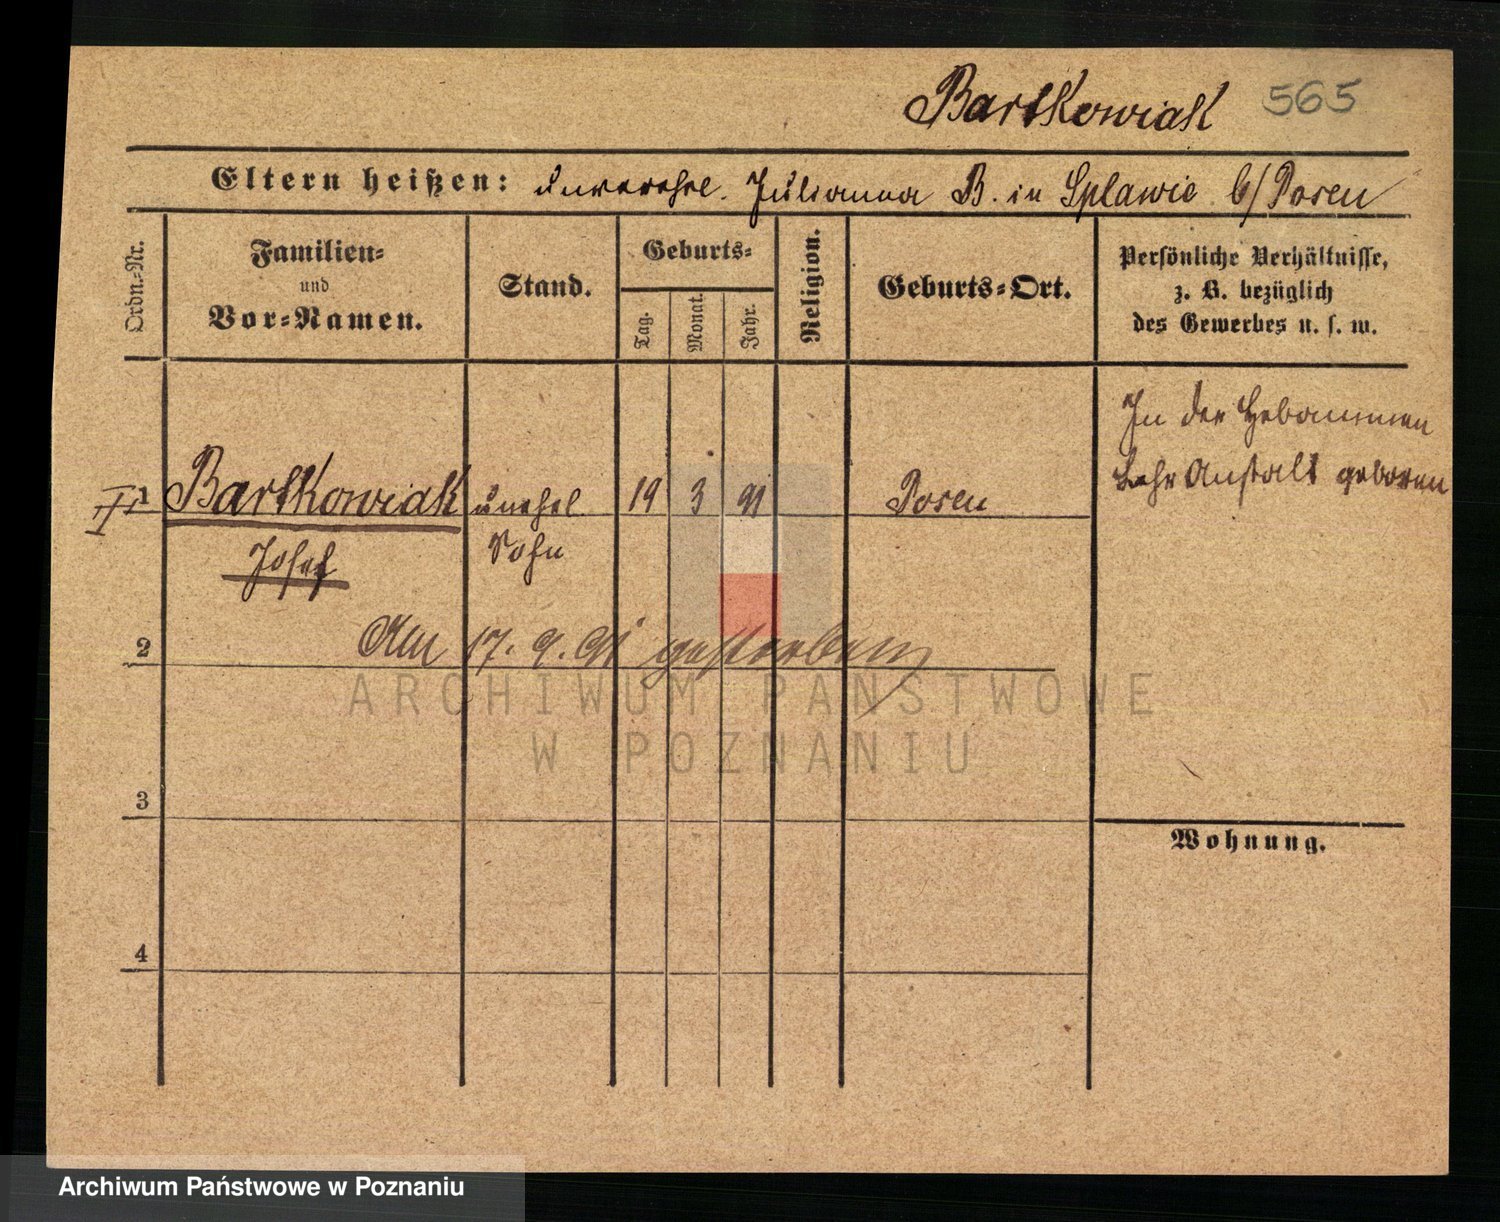 Bartkowiak 565
Eltern heißen: unverehel. Julianna B. in Splawie b/Posen
Ordn.-Nr.
Familien-
und
Vor-Namen.
Stand.
Geburts-
Tag.
Monat.
Jahr.
Religion.
Geburts-Ort.
Persönliche Verhältnisse,
z. B. bezüglich
des Gewerbes u. s. w.
In der Hebammen
Lehr Anstalt geboren
1 Bartkowiak unehel 19 3 91 Posen
Josef Sohn
2 Am 17. 9. 91 gestorben
ARCHIWUM PAŃSTWOWE
W POZNANIU
3
Wohnung.
4
Archiwum Państwowe w Poznaniu